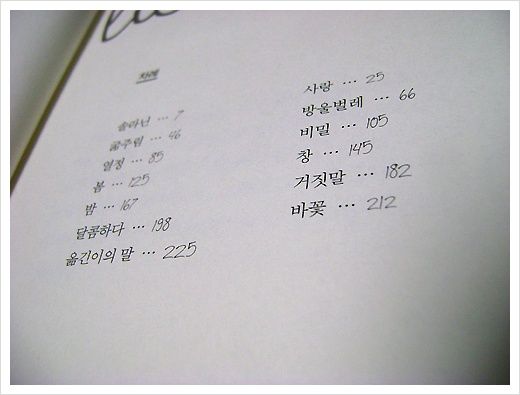 차례
솔라닌 … 7
굶주림 … 46
열정 … 85
봄 … 125
밤 … 167
달콤하다 … 198
옮긴이의 말 … 225
사랑 … 25
방울벌레 … 66
비밀 … 105
창 … 145
거짓말 … 182
바꽃 … 212